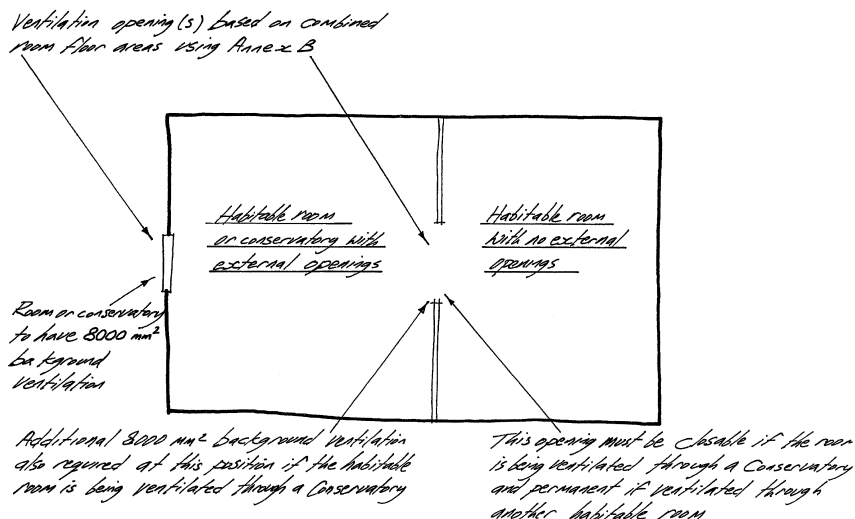 Ventilation opening(s) based on combined
room floor areas using Annex B
Habitable room
or conservatory with
external openings
Habitable room
with no external
openings
Room or conservatory
to have 8000 mm²
background
ventilation
Additional 8000 mm² background ventilation
also required at this position if the habitable
room is being ventilated through a Conservatory
This opening must be closable if the room
is being ventilated through a Conservatory
and permanent if ventilated through
another habitable room